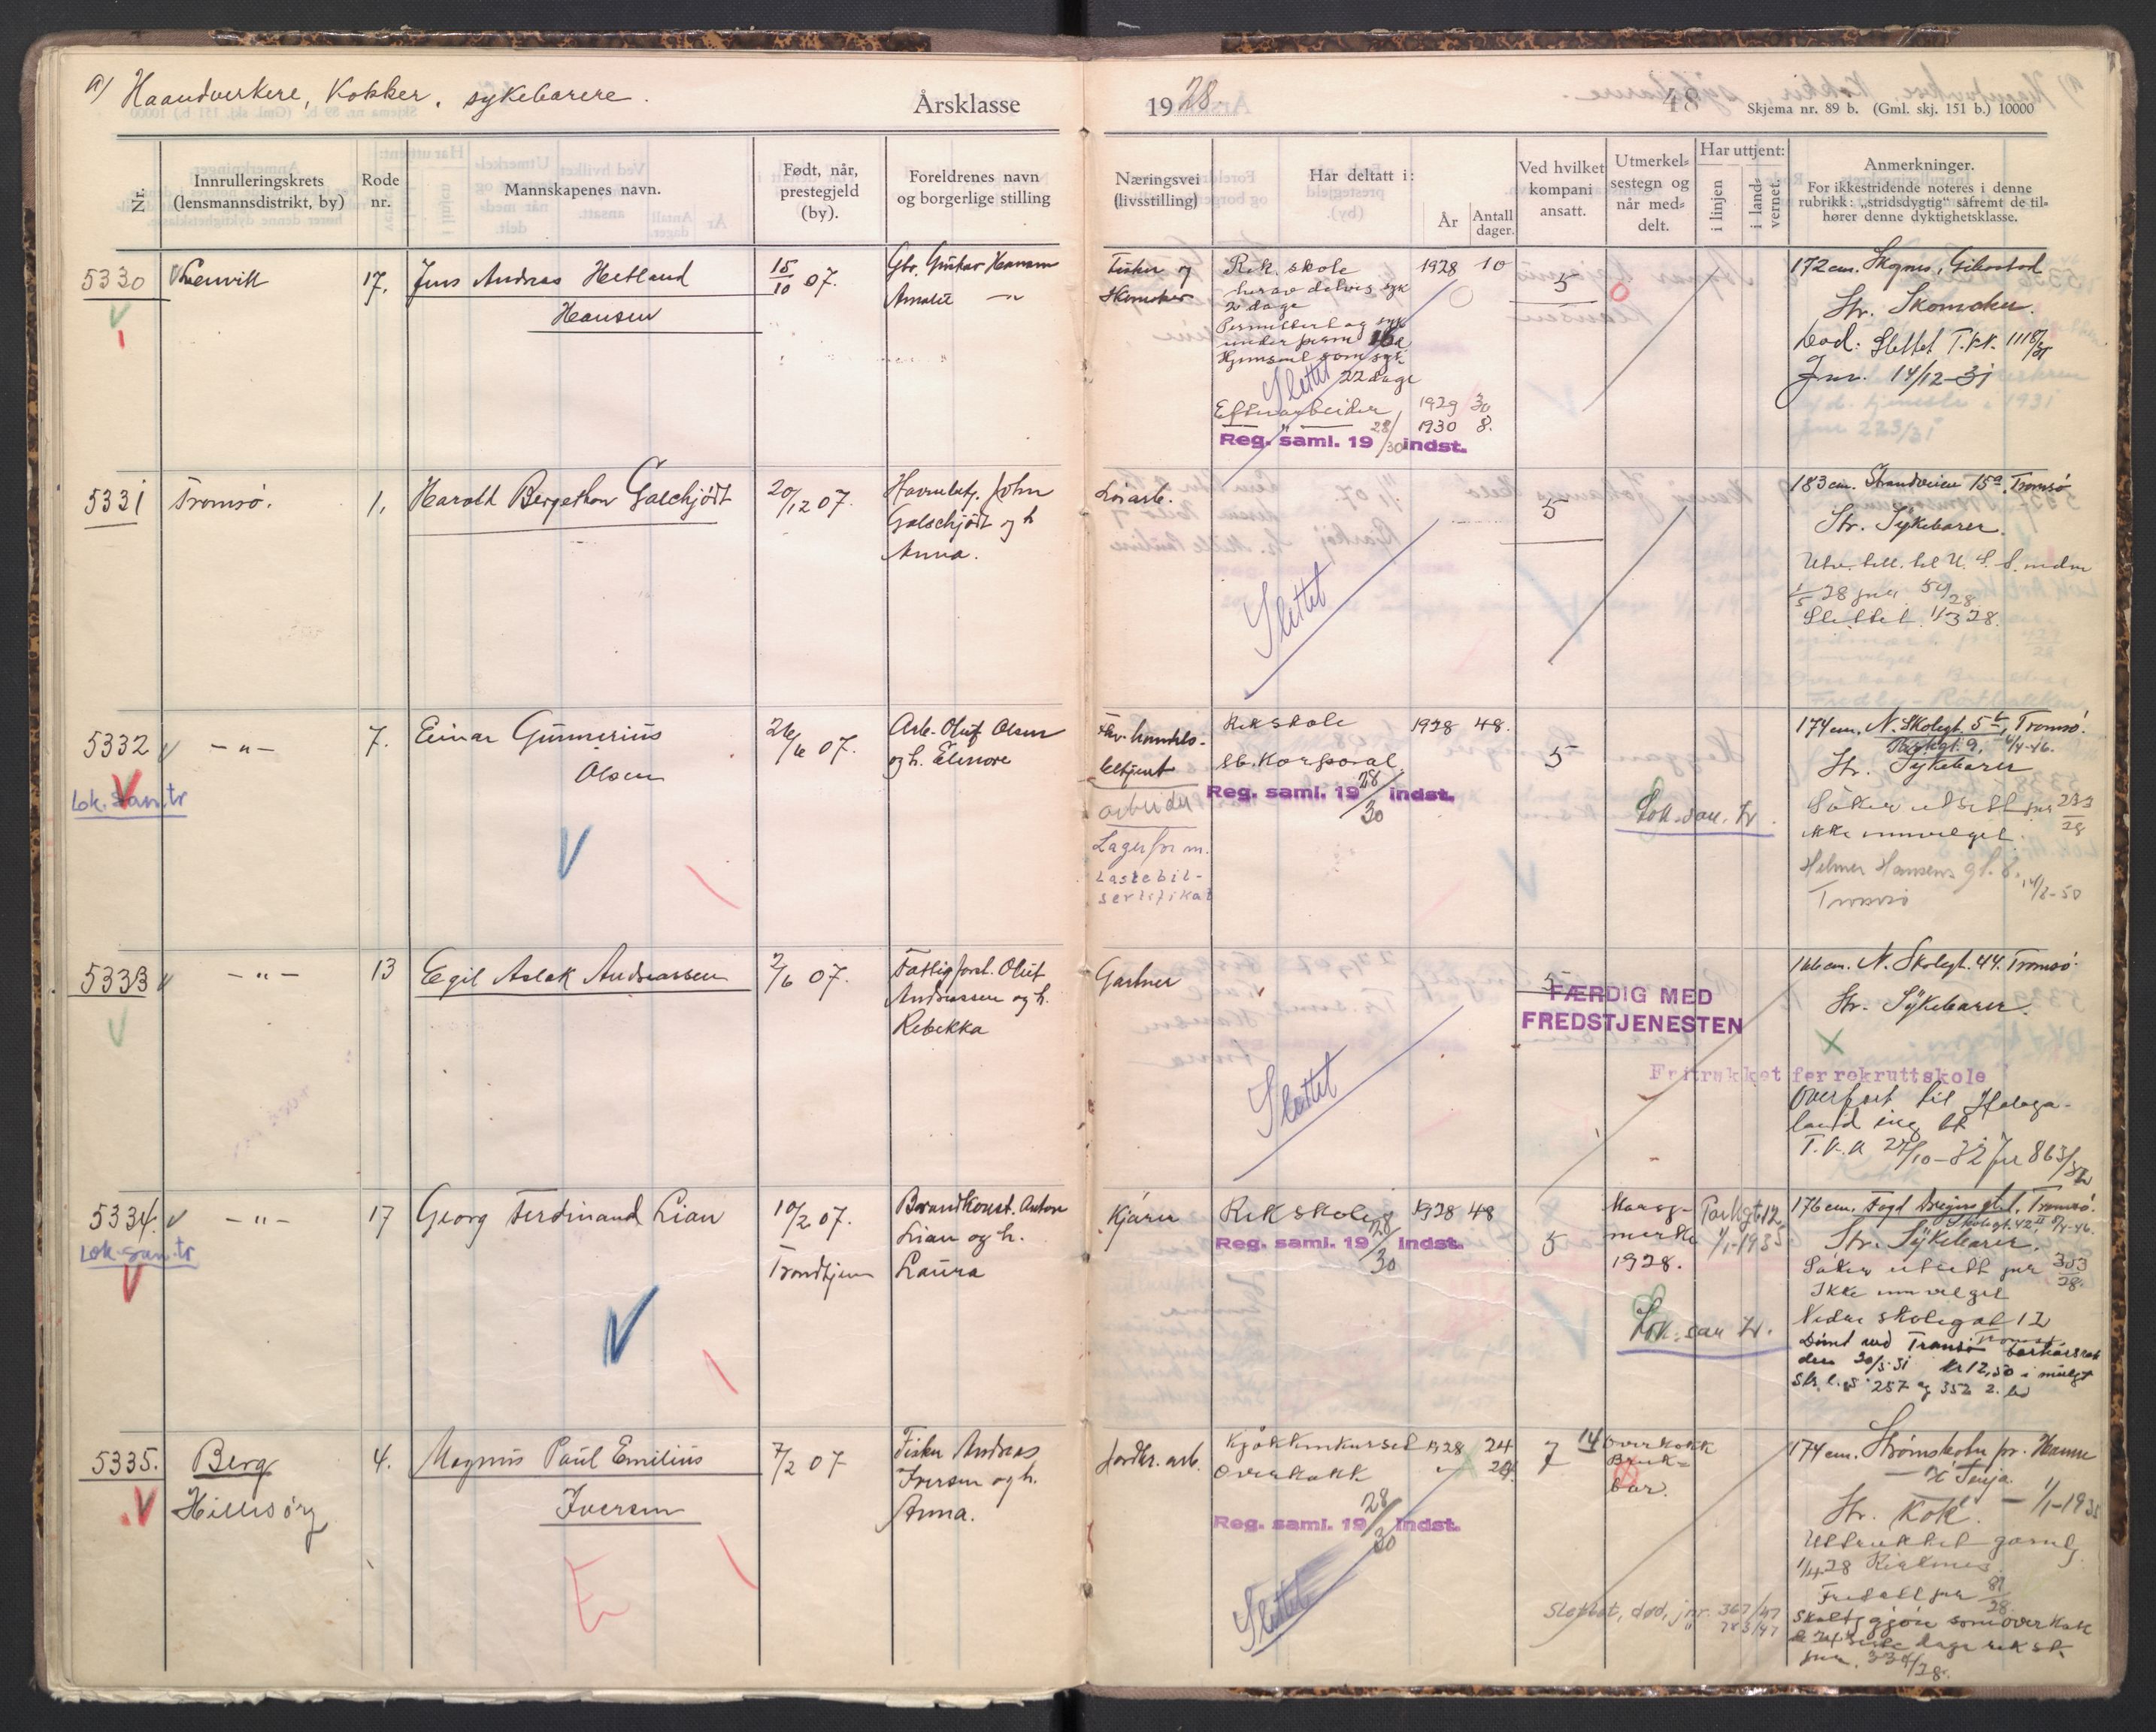 a) Haandverkere, Kokker, sykebærere.
Årsklasse
1928
48
Skjema nr. 89 b. (Gml. skj. 151 b.) 10000
Nr.
Innrulleringskrets
(lensmannsdistrikt, by)
Rode
nr.
Mannskapenes navn.
Født, når,
prestegjeld
(by).
Foreldrenes navn
og borgerlige stilling
Næringsvei
(livsstilling)
Har deltatt i:
År
Antall
dager.
Ved hvilket
kompani
ansatt.
Utmerkel-
sestegn og
når med-
delt.
Har uttjent:
i linjen
i land-
vernet.
Anmerkninger.
For ikkestridende noteres i denne
rubrikk: „stridsdygtig" såfremt de til-
hører denne dyktighetsklasse.
5330
Lenvik
17.
Jens Andreas Hetland
Hansen
15/10 07.
Gbr. Gustav Hansen
Amalie —"—
Fisker og
Skomaker
Rek. skole 1928 10
herav delvis syk
2 dage
Permittert og syk
under perm
Hjemsendt som syk
22 dage
Slettet
Efterarbeider 1929 30
—"— 1930 8.
Reg. saml. 19 28/30 indst.
5
172 cm. Skognes, Gibostad
Str. Skomaker.
Død: Slettet T.kk. 1118/31
Jnr. 14/12-31
5331
Tromsø.
1.
Harald Bergethon Galschjødt
20/12 07.
Havnebetj. John
Galschjødt og h
Anna.
Løsarb.
Slettet
5
183 cm. Strandveien 15a, Tromsø
Str. Sykebærer.
Utv. till. til U. S. A. inden
1/5 28 jnr 50/28
Slettet 1/3 28.
5332
—"—
7.
Einar Gunnerius
Olsen
26/6 07.
Arb. Oluf Olsen
og h. Elenore
Lok. san. tr
arbeider
Lagerform.
Lastebil-
sertifikat
Rekskole 1928 48.
sb. Korporal
Reg. saml. 19 28/30 indst.
5
Lok. san. tr.
174 cm. N. Skolegt. 5b, Tromsø.
Str. Sykebærer
Søker utsett jnr 233/28
ikke innvilget.
Helmer Hansens gt. 8.
Tromsø
5333
—"—
13
Egil Aslak Andreassen
2/6 07.
Fattigforst. Oluf
Andreassen og h.
Rebekka
Gartner
Slettet
5
FÆRDIG MED
FREDSTJENESTEN
166 cm. N. Skolegt. 44. Tromsø.
Str. Sykebærer.
Fritrukket for rekruttskole
Overført til Haloga-
land ing. bt
T.K.K. 27/10-32 jnr 863/32
5334.
—"—
17
Georg Ferdinand Lian
10/2 07.
Trondhjem
Brandkonst. Anton
Lian og h.
Laura
Lok. san. tr
Kjører
Rekskole 1928 48
Reg. saml. 19 28/30 indst.
5
Mars-
merke
1928.
Parkgt 12.
1/1-1935
Lok. san. tr.
176 cm. Fogd Dreyers gt. 1, Tromsø.
Skolegt. 42. II
Str. Sykebærer.
Søker utsett jnr 333/28.
Ikke innvilget
Nedre skolegat 12
Tromsø.
Dømt ved Tromsø forhørsrett
den 30/5-31 kr 12,50 i mulkt
Str. l. § 257 og 352 2. led
5335.
Berg
Hillesøy
4.
Magnus Paul Emilius
Iversen
7/2 07
Fisker Andreas
Iversen og h.
Anna.
Jordbr. arb.
Kjøkkenkurset 1928 24
Overkokk " 24
Reg. saml. 19 28/30 indst.
Slettet
7
14
Overkokk
Bruk-
bar.
Sløifet, død, jnr. 367/47
" 783/47
174 cm. Strømsbotn pr. Hamn
i Senja.
— 1/1-1935
Str. Kok.
Uttrukket garn
1/4 28 Kirkenes
Fritatt jnr 81/28
Skal tjg gjøre som overkokk
jnr. 334/28.